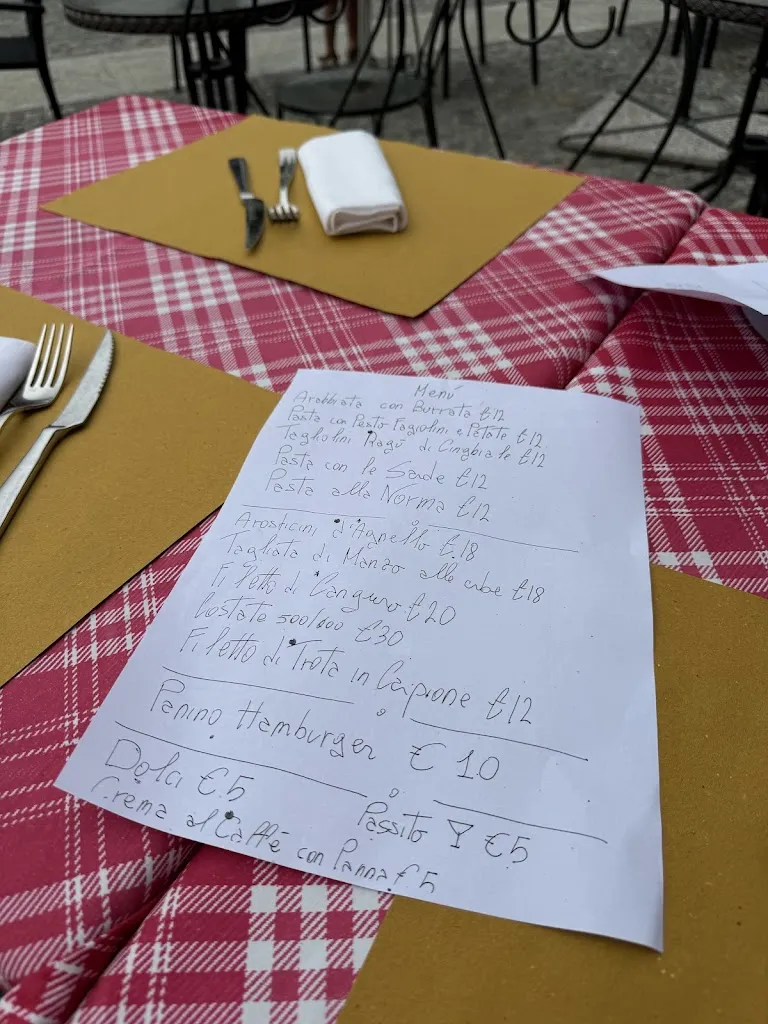 Menú
Arabbiata con Burrata €12
Pasta con Pesto Fagiolini e Patate €12
Tagliolini Ragú di Cinghiale €12
Pasta con le Sarde €12
Pasta alla Norma €12
Arosticini d'Agnello €18
Tagliata di Manzo alle erbe €18
Filetto di Canguro €20
Costate 500/600 €30
Filetto di Trota in Carpione €12
Panino Hamburger € 10
Dolci €5
Passito Y €5
Crema al Caffé con Panna € 5